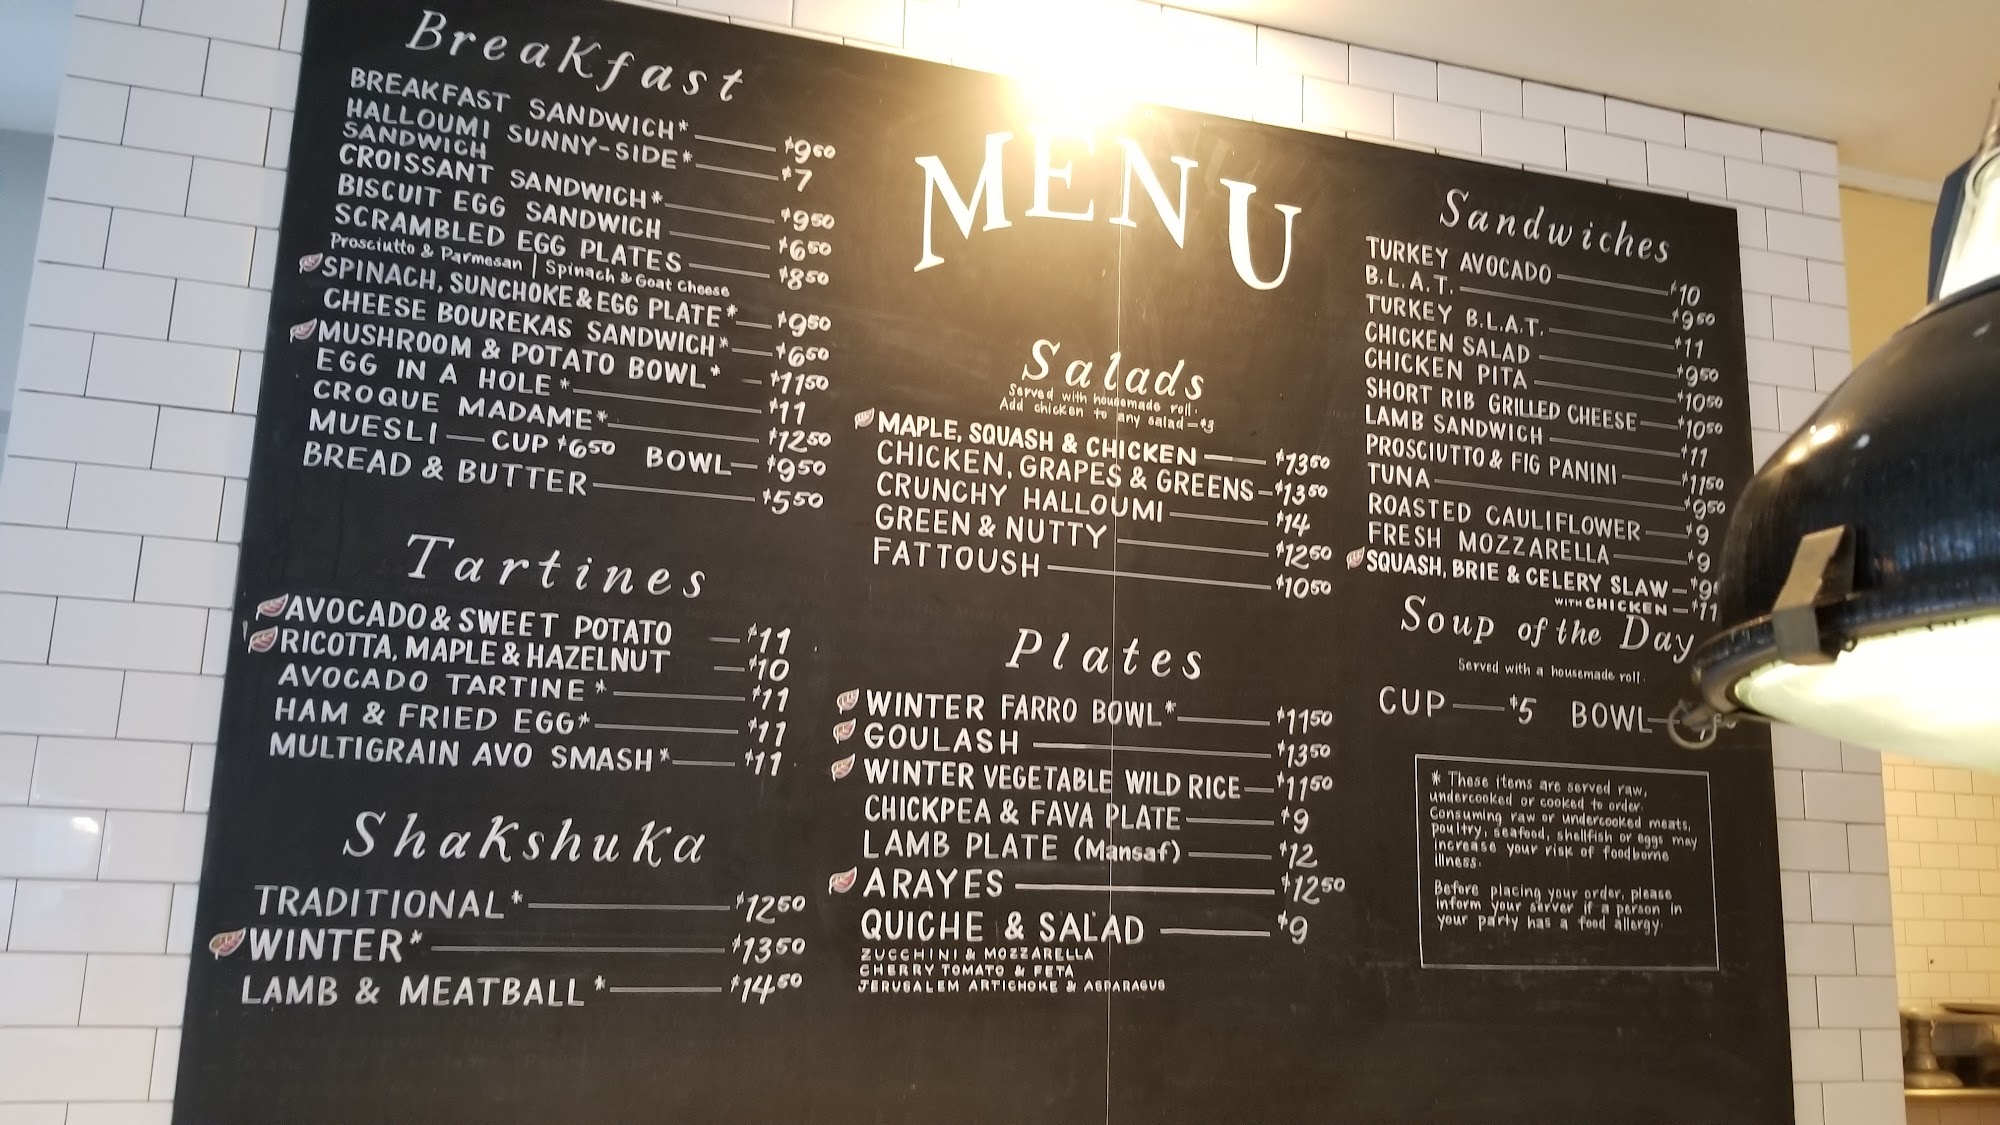 Breakfast
BREAKFAST SANDWICH* $9.50
HALLOUMI SUNNY-SIDE* $7
SANDWICH
CROISSANT SANDWICH* $9.50
BISCUIT EGG SANDWICH $6.50
SCRAMBLED EGG PLATES $8.50
Prosciutto & Parmesan | Spinach & Goat Cheese
SPINACH, SUNCHOKE & EGG PLATE* $9.50
CHEESE BOUREKAS SANDWICH* $6.50
MUSHROOM & POTATO BOWL* $11.50
EGG IN A HOLE* $11
CROQUE MADAME* $12.50
MUESLI — CUP $6.50 BOWL — $9.50
BREAD & BUTTER $5.50
Tartines
AVOCADO & SWEET POTATO — $11
RICOTTA, MAPLE & HAZELNUT — $10
AVOCADO TARTINE* $11
HAM & FRIED EGG* $11
MULTIGRAIN AVO SMASH* $11
Shakshuka
TRADITIONAL* $12.50
WINTER* $13.50
LAMB & MEATBALL* $14.50
MENU
Salads
Served with housemade roll.
Add chicken to any salad — $3
MAPLE, SQUASH & CHICKEN $13.50
CHICKEN, GRAPES & GREENS $13.50
CRUNCHY HALLOUMI $14
GREEN & NUTTY $12.50
FATTOUSH $10.50
Plates
WINTER FARRO BOWL* $11.50
GOULASH $13.50
WINTER VEGETABLE WILD RICE $11.50
CHICKPEA & FAVA PLATE $9
LAMB PLATE (Mansaf) $12
ARAYES $12.50
QUICHE & SALAD $9
ZUCCHINI & MOZZARELLA
CHERRY TOMATO & FETA
JERUSALEM ARTICHOKE & ASPARAGUS
Sandwiches
TURKEY AVOCADO $10
B.L.A.T. $9.50
TURKEY B.L.A.T. $11
CHICKEN SALAD $9.50
CHICKEN PITA $10.50
SHORT RIB GRILLED CHEESE $10.50
LAMB SANDWICH $11
PROSCIUTTO & FIG PANINI $11.50
TUNA $9.50
ROASTED CAULIFLOWER $9
FRESH MOZZARELLA $9
SQUASH, BRIE & CELERY SLAW — $9
WITH CHICKEN — $11
Soup of the Day
Served with a housemade roll.
CUP — $5 BOWL —
* These items are served raw,
undercooked or cooked to order.
Consuming raw or undercooked meats,
poultry, seafood, shellfish or eggs may
increase your risk of foodborne
illness.
Before placing your order, please
inform your server if a person in
your party has a food allergy.